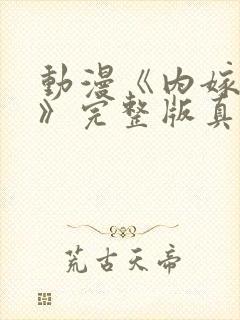 動漫《内嫁
》完整版真
荒古天帝